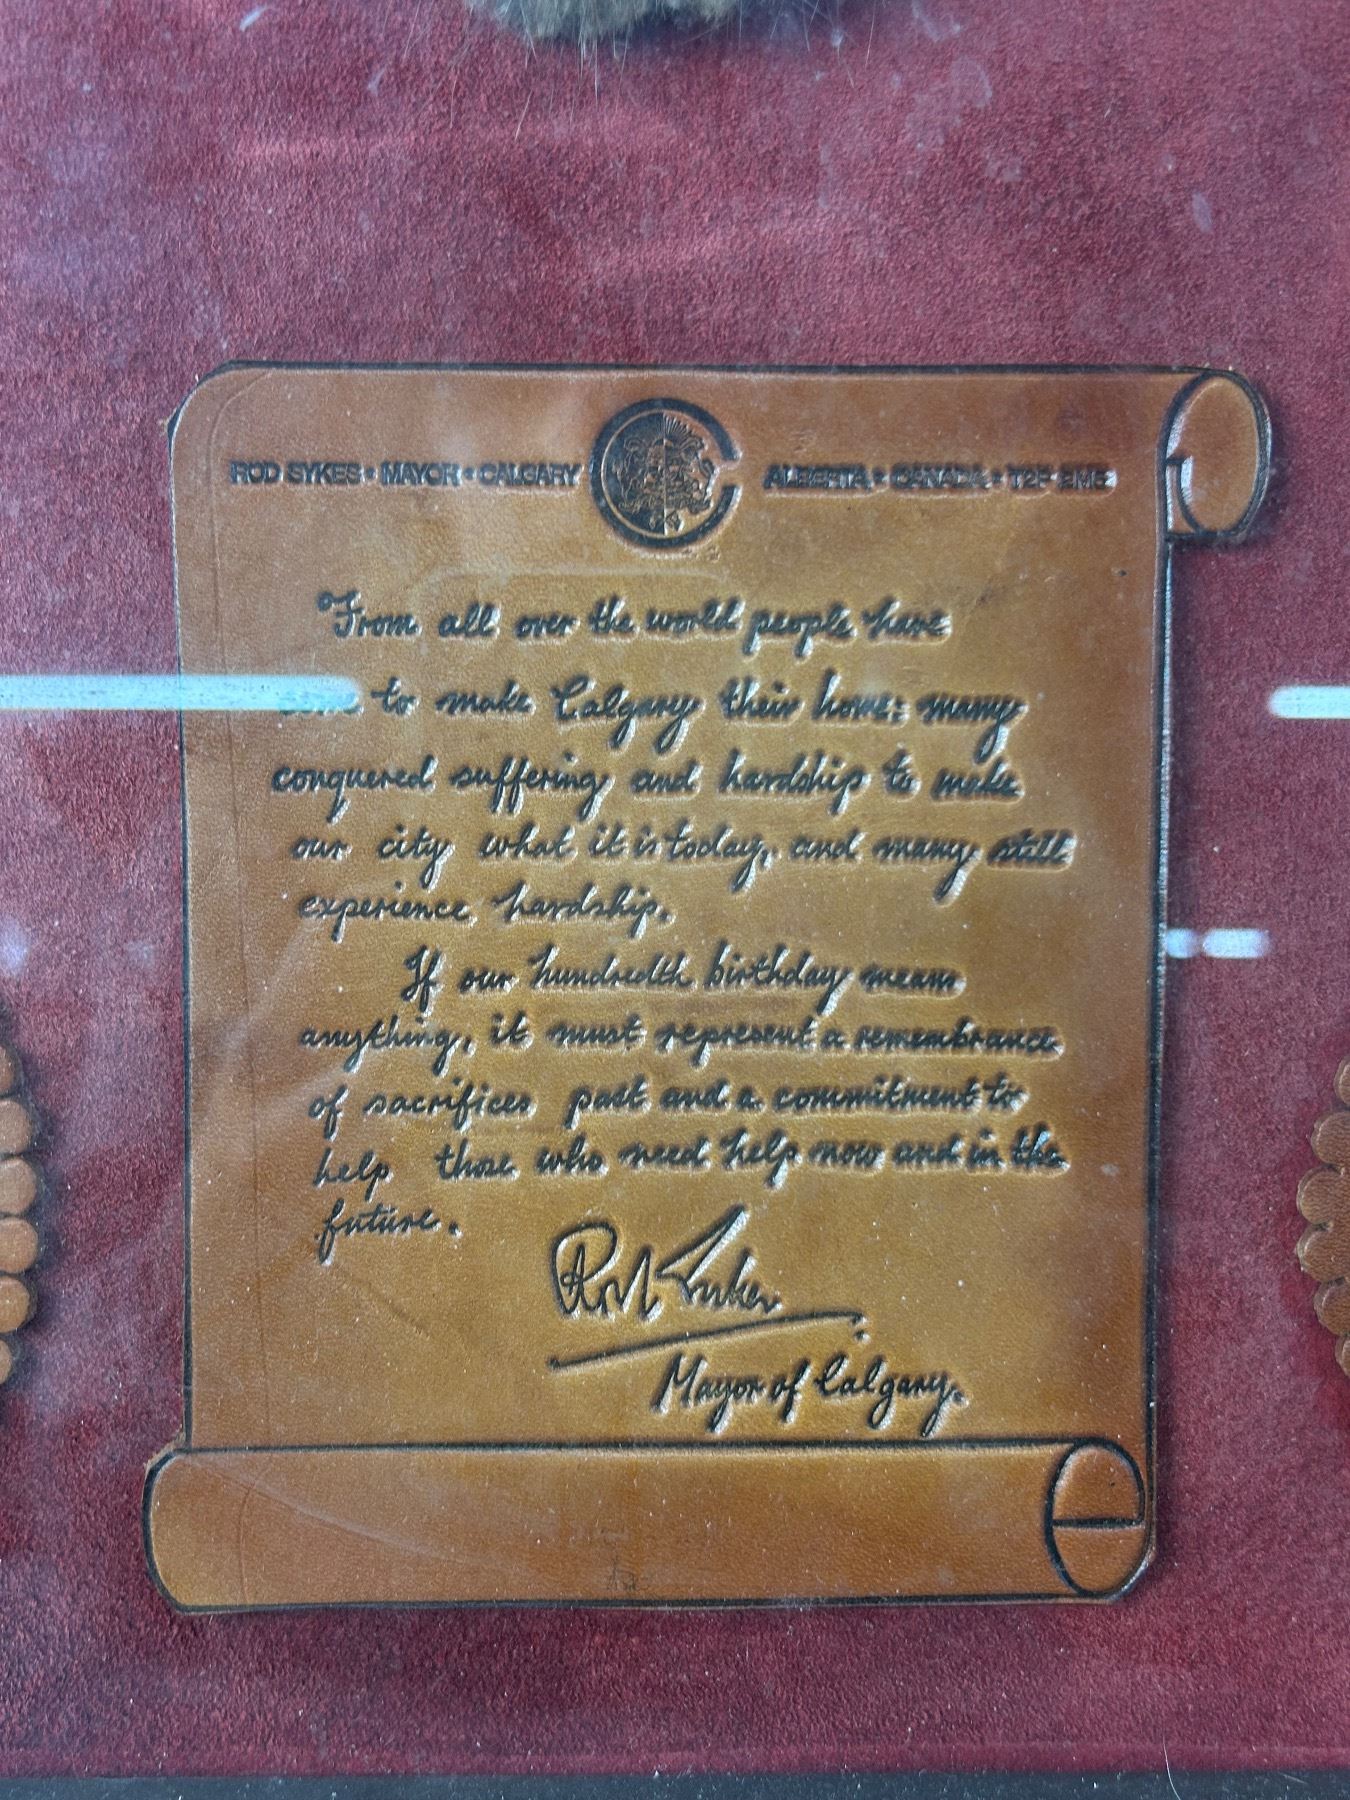 ROD SYKES • MAYOR • CALGARY ALBERTA • CANADA • T2P 2M5
From all over the world people have
come to make Calgary their home: many
conquered suffering and hardship to make
our city what it is today, and many still
experience hardship.
If our hundredth birthday means
anything, it must represent a remembrance
of sacrifices past and a commitment to
help those who need help now and in the
future.
Rod Sykes
Mayor of Calgary.